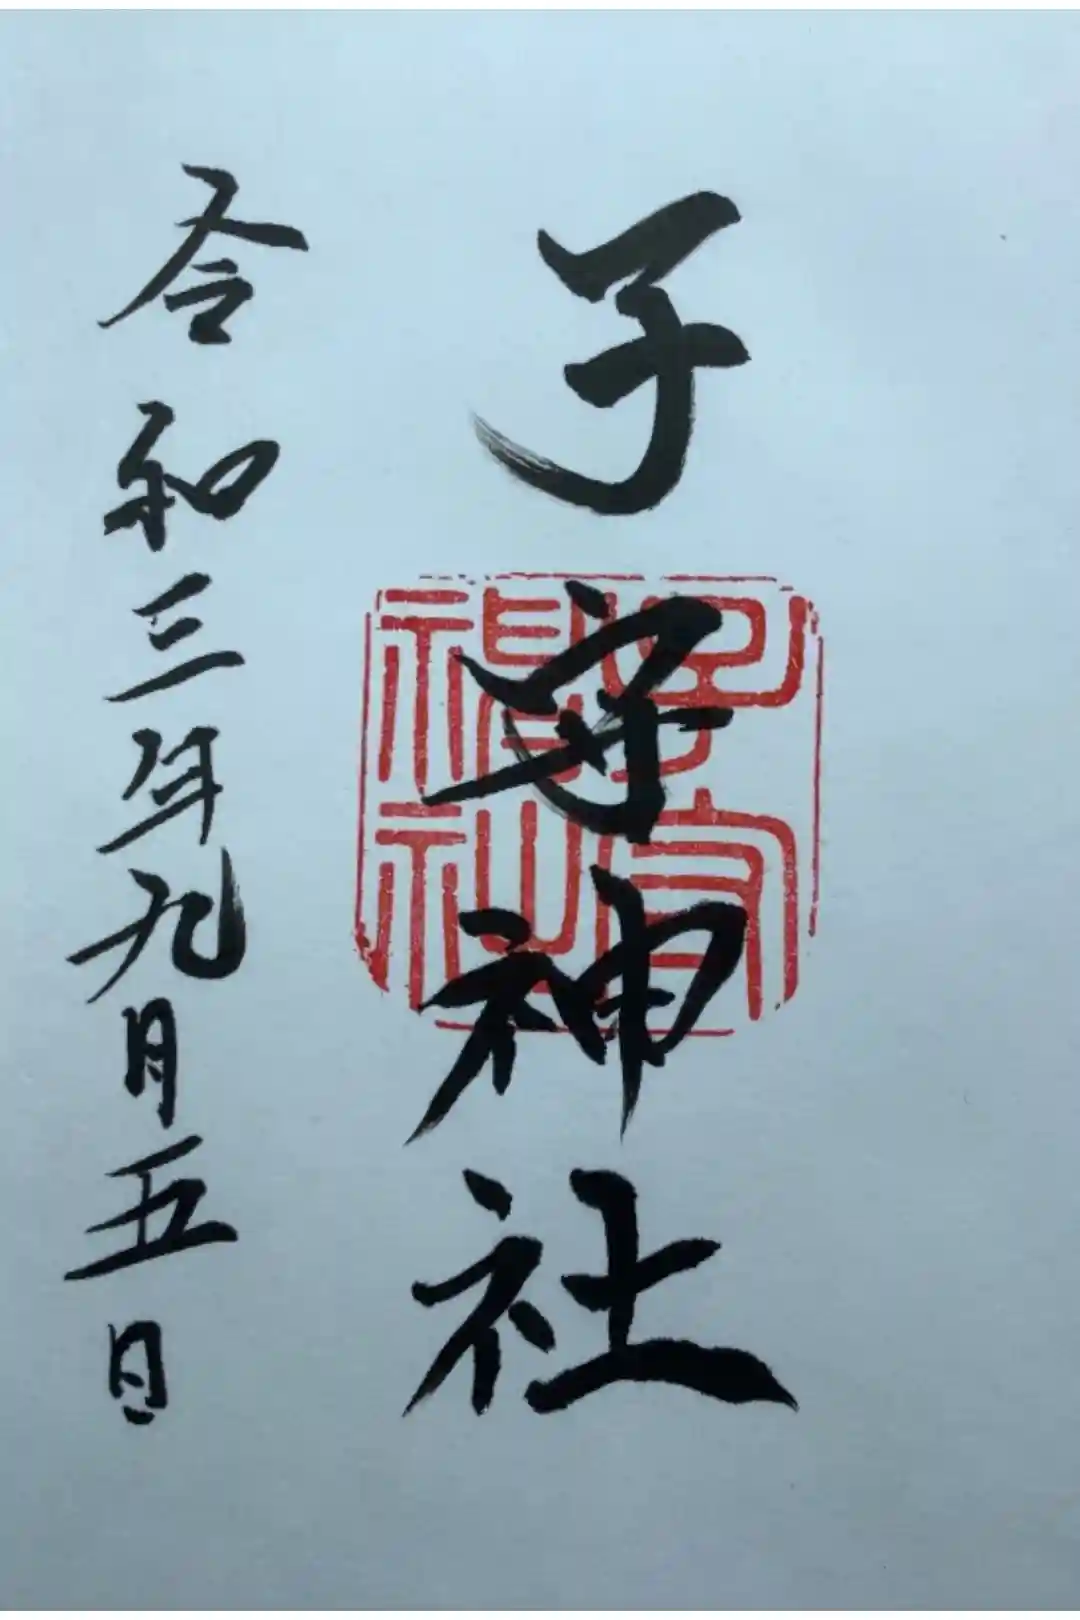 子守神社
令和三年九月五日
子守神社